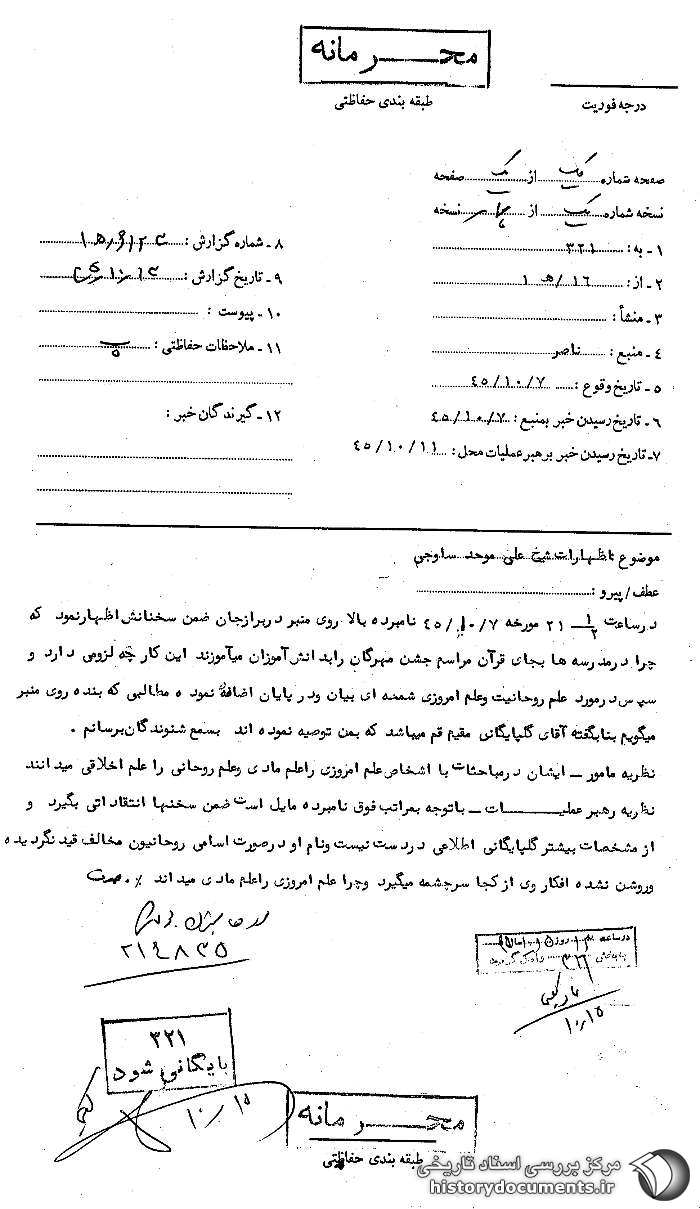 محـــرمانه
طبقه بندی حفاظتی
درجه فوریت
صفحه شماره یک از یک صفحه
نسخه شماره یک از نسخه
۱ـ به : ۳۲۱
۲ـ از : ۱۶/هـ ۱
۳ـ منشأ :
۴ـ منبع : ناصر
۵ـ تاریخ وقوع : ۴۵/۱۰/۷
۶ـ تاریخ رسیدن خبر بمنبع : ۴۵/۱۰/۷
۷ـ تاریخ رسیدن خبر برهبر عملیات محل : ۴۵/۱۰/۱۱
۸ـ شماره گزارش :
۹ـ تاریخ گزارش :
۱۰ـ پیوست :
۱۱ـ ملاحظات حفاظتی :
۱۲ـ گیرندگان خبر :
موضوع : اظهارات شیخ علی موحد ساوجی
عطف/پیرو :
درساعت ۲۱ ۱/۲ مورخه ۴۵/۱۰/۷ نامبرده بالا روی منبر دربرازجان ضمن سخنانش اظهارنمود که
چرا درمدرسه ها بجای قرآن مراسم جشن مهرگان رابدانش آموزان میآموزند این کار چه لزومی دارد و
سپس درمورد علم روحانیت وعلم امروزی شمه ای بیان ودر پایان اضافه نموده مطالبی که بنده روی منبر
میگویم بنابگفته آقای گلپایگانی مقیم قم میباشد که بمن توصیه نموده اند بسمع شنوندگان برسانم .
نظریه مامور ـ ایشان درمباحثات با اشخاص علم امروزی راعلم مادی وعلم روحانی را علم اخلاقی میدانند
نظریه رهبر عملیـــات ـ باتوجه بمراتب فوق نامبرده مایل است ضمن سخنها انتقاداتی بگیرد و
از مشخصات بیشتر گلپایگانی اطلاعی دردست نیست ونام او درصورت اسامی روحانیون مخالف قید نگردیده
وروشن نشده افکار وی از کجا سرچشمه میگیرد وچرا علم امروزی راعلم مادی میداند ٪.
۲۱۴۸۳۵
در ساعت روز
۳۲۶
۱۰٫۱۵
۳۲۱
بایگانی شود
۱۰٫۱۵
محـــرمانه
طبقه بندی حفاظتی
مرکز بررسی اسناد تاریخی
historydocuments.ir